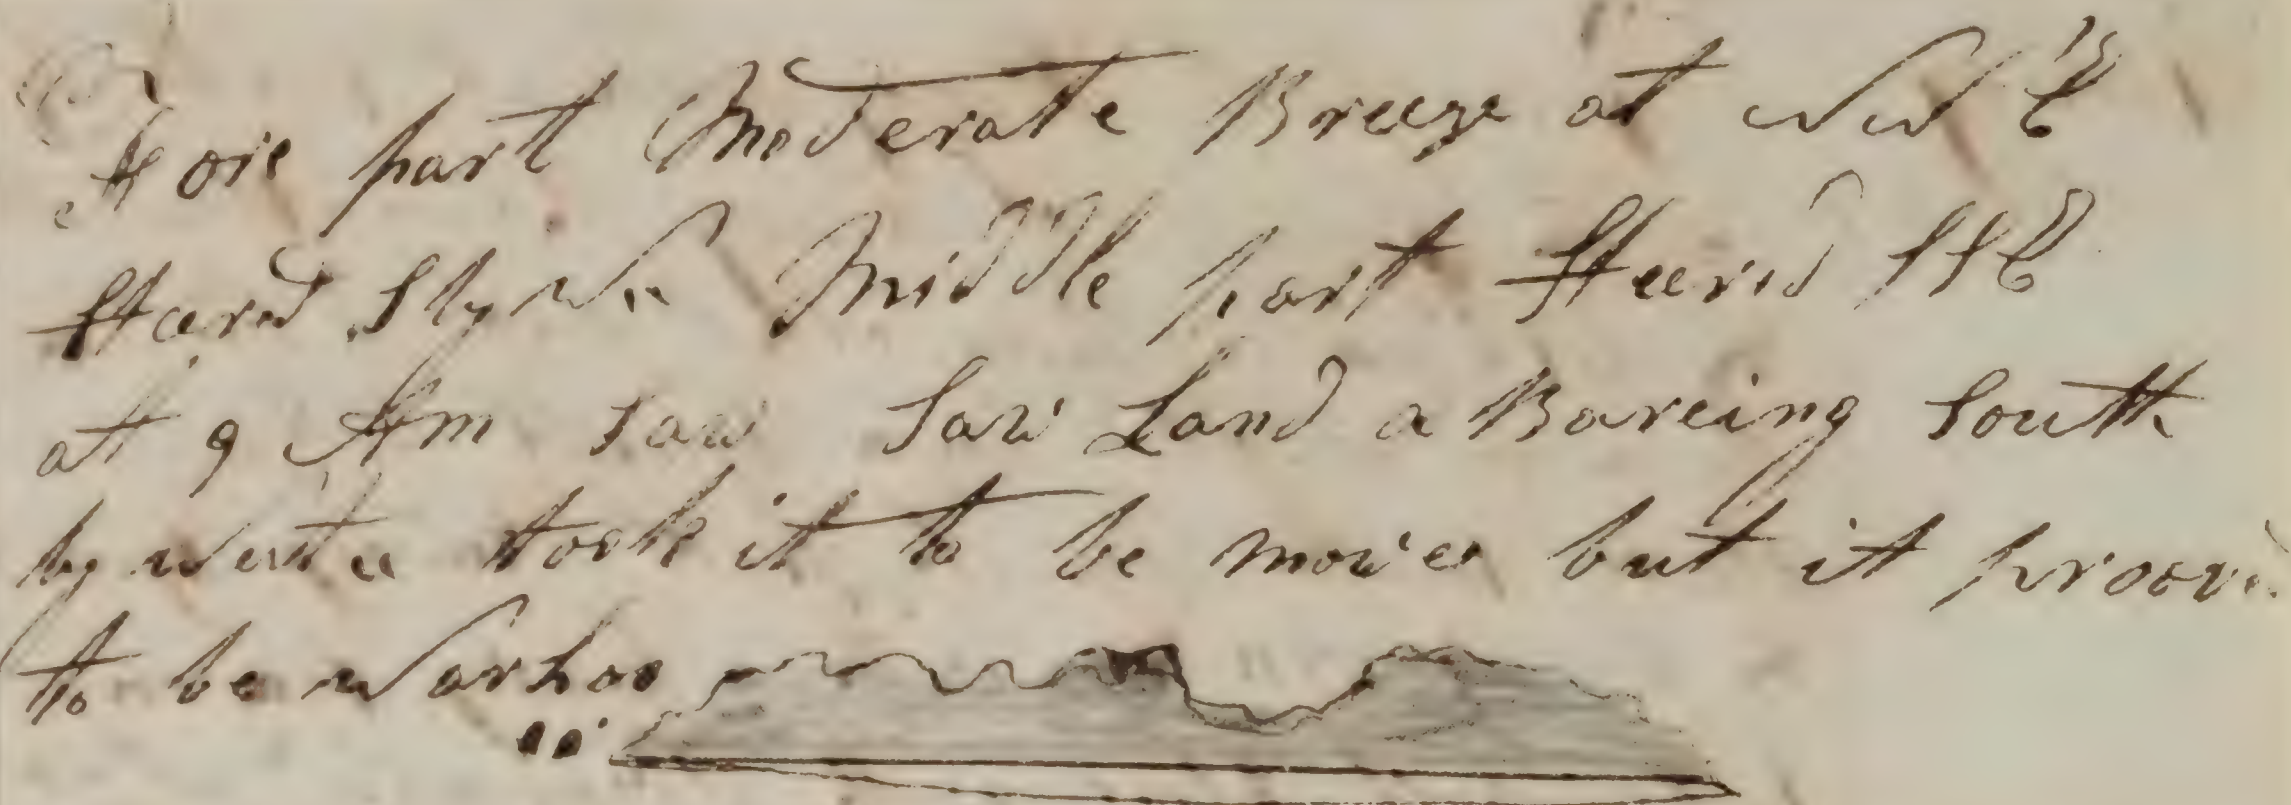 Fore part Moderate Breeze at NW
Steerd S by W Middle part Steerd SSE
att 9 Am saw Saw Land a Bareing South
by west took it to be mowe but it proov
to be warhoo